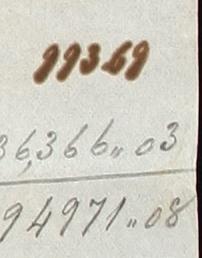 99369
36,366,,03
94971,,08